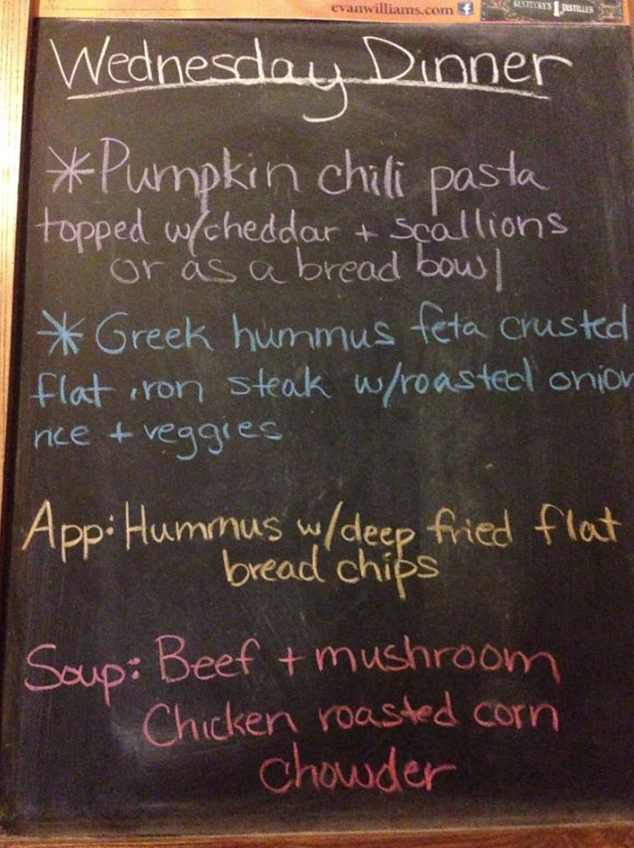 evanwilliams.com f
KENTUCKY'S 1ST DISTILLER
Wednesday Dinner
*Pumpkin chili pasta
topped w/cheddar + scallions
or as a bread bowl
*Greek hummus feta crusted
flat iron steak w/roasted onion
rice + veggies
App: Hummus w/deep fried flat
bread chips
Soup: Beef + mushroom
Chicken roasted corn
chowder